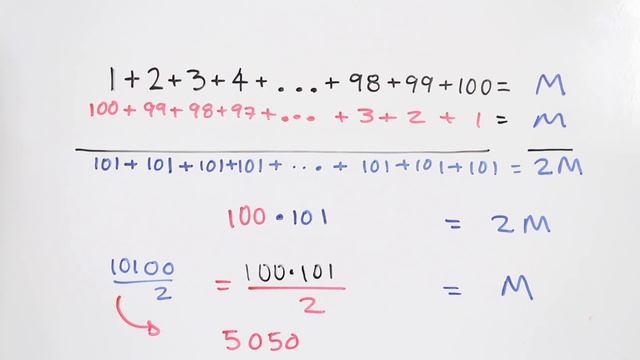 1+2+3+4+...+98+99+100= M
100+99+98+97+... +3+2+1 = M
101+101+101+101+...+ 101+101+101 = 2M
100•101 = 2M
10100/2 = 100•101/2 = M
5050